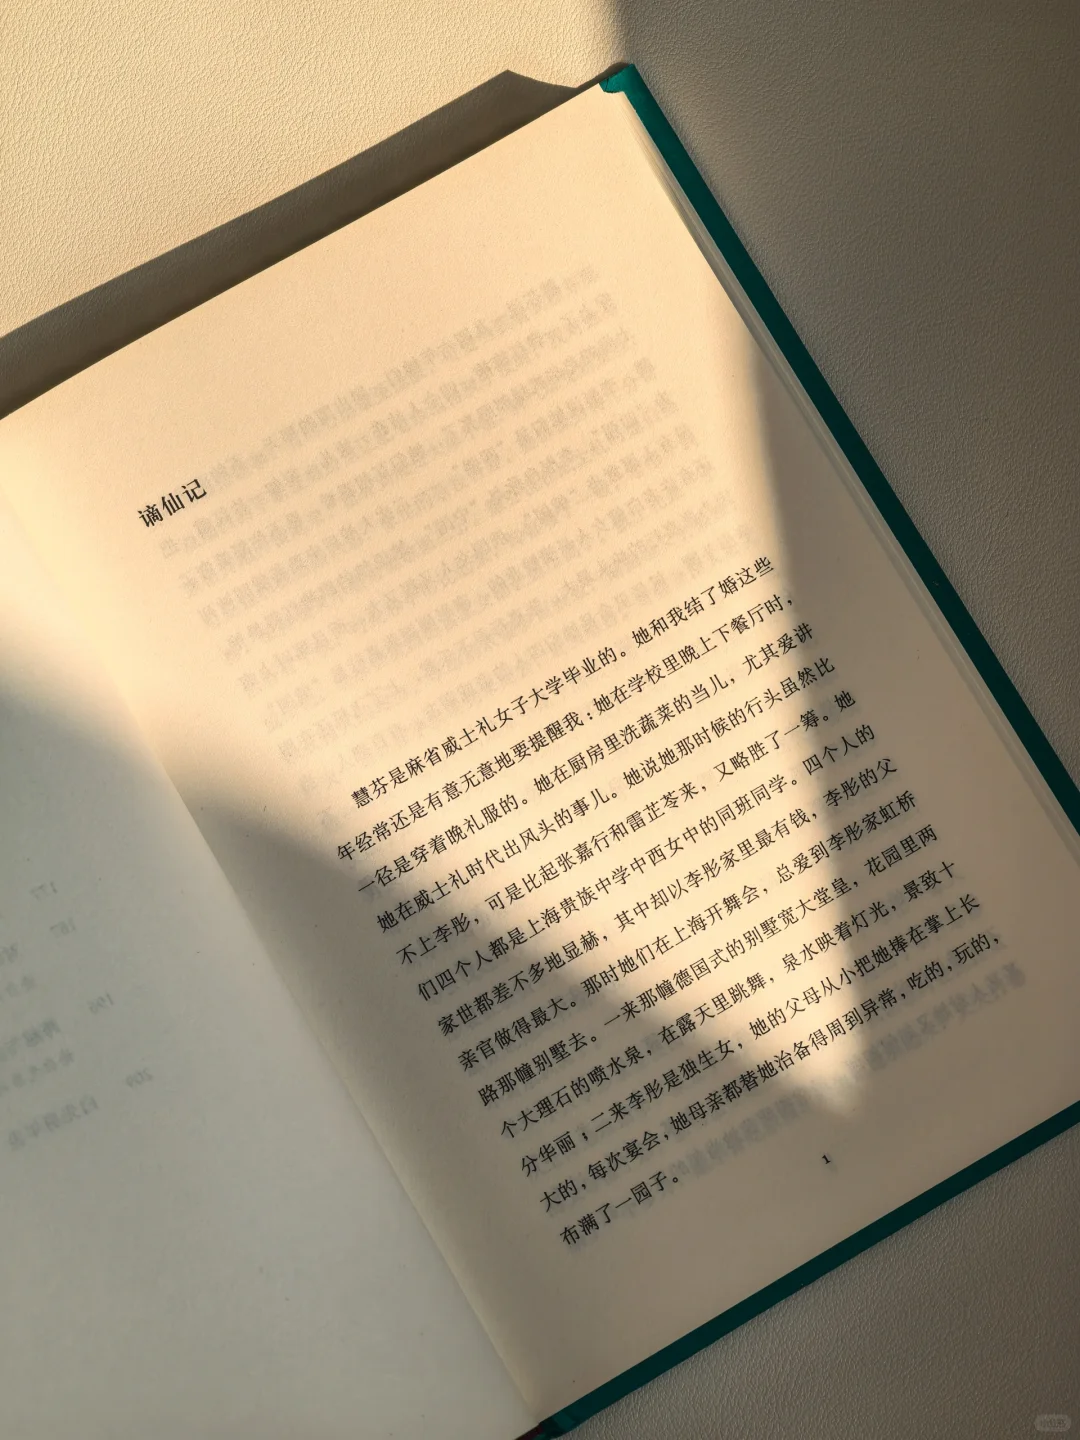 谪仙记
慧芬是麻省威士礼女子大学毕业的。她和我结了婚这些
年经常还是有意无意地要提醒我：她在学校里晚上下餐厅时，
一径是穿着晚礼服的。她在厨房里洗蔬菜的当儿，尤其爱讲
她在威士礼时代出风头的事儿。她说她那时候的行头虽然比
不上李彤，可是比起张嘉行和雷芷苓来，又略胜了一筹。她
们四个人都是上海贵族中学中西女中的同班同学。四个人的
家世都差不多地显赫，其中却以李彤家里最有钱，李彤的父
亲官做得最大。那时她们在上海开舞会，总爱到李彤家虹桥
路那幢别墅去。一来那幢德国式的别墅宽大堂皇，花园里两
个大理石的喷水泉，在露天里跳舞，泉水映着灯光，景致十
分华丽；二来李彤是独生女，她的父母从小把她捧在掌上长
大的，每次宴会，她母亲都替她治备得周到异常，吃的，玩的，
布满了一园子。
1